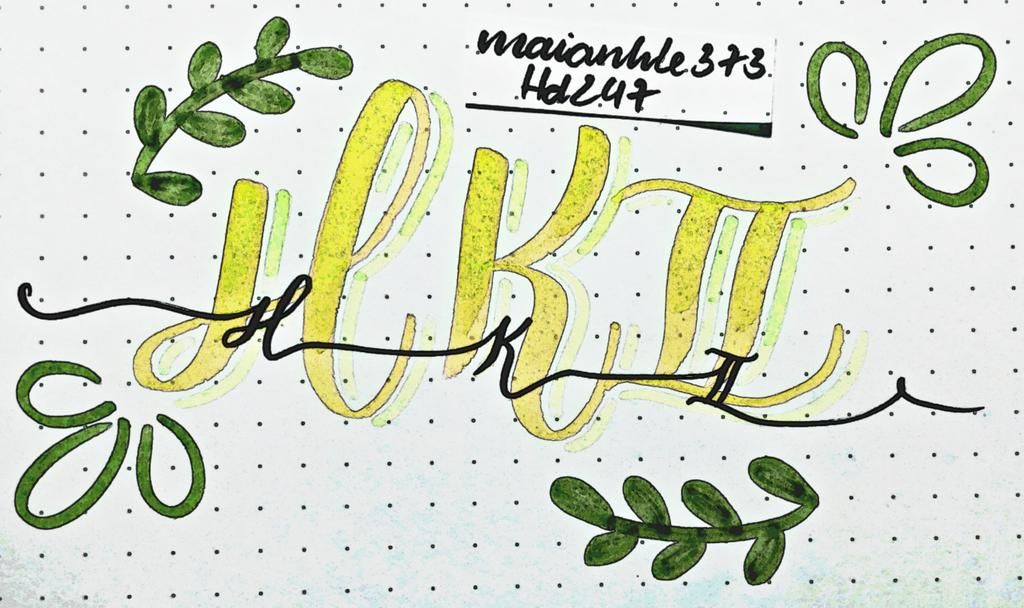 maianhle373
Hd247
HKII
H K II